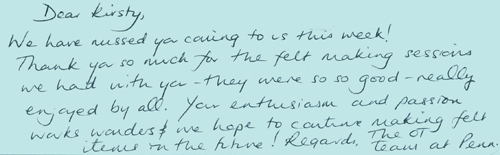 Dear Kirsty,
We have missed you coming to us this week!
Thank you so much for the felt making sessions
we had with you - they were so so good - really
enjoyed by all. Your enthusiasm and passion
works wonders & we hope to continue making felt
items in the future! Regards, The OT
Team at Penn.